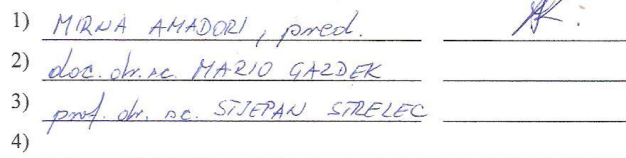 1) MIRNA AMADORI, pred.
2) doc. dr. sc. MARIO GAZDEK
3) prof. dr. sc. STJEPAN STRELEC
4)